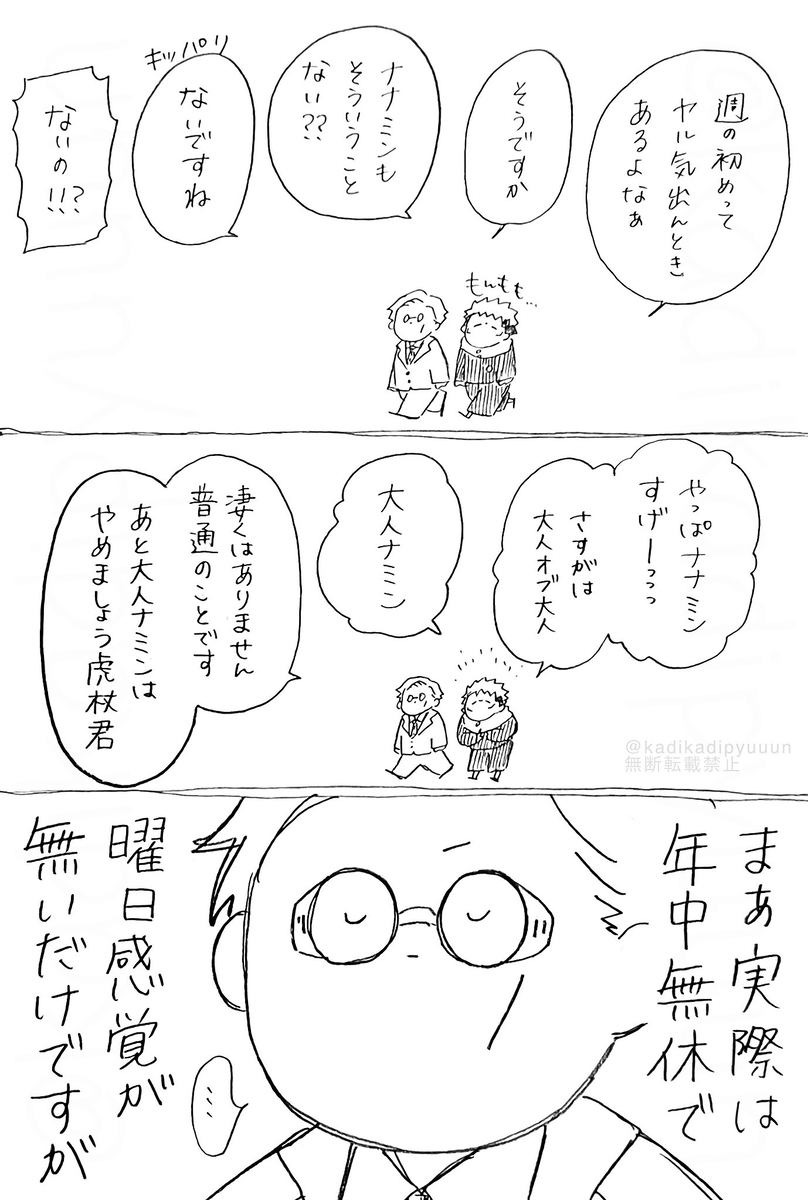 週の初めって
ヤル気出んとき
あるよなぁ
そうですか
ナナミンも
そういうこと
ない??
キッパリ
ないですね
ないの!!?
もんもも…
やっぱナナミン
すげーっっっ
さすがは
大人オブ大人
大人ナミン
凄くはありません
普通のことです
あと大人ナミンは
やめましょう虎杖君
@kadikadipyuuun
無断転載禁止
まぁ実際は
年中無休で
曜日感覚が
無いだけですが
…